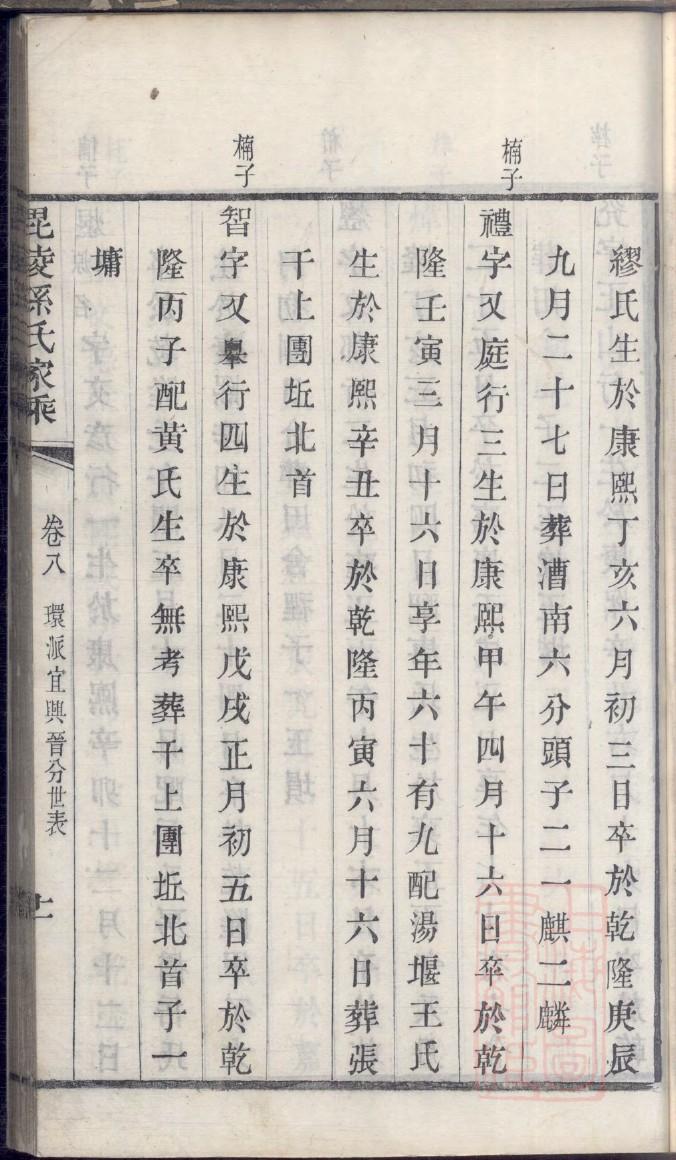 繆氏生於康熙丁亥六月初三日卒於乾隆庚辰
九月二十七日葬漕南六分頭子二一麒二麟
楠子
禮字又庭行三生於康熙甲午四月十六日卒於乾
隆壬寅三月十六日享年六十有九配湯堰王氏
生於康熙辛丑卒於乾隆丙寅六月十六日葬張
干上團坵北首
楠子
智字又臯行四生於康熙戊戌正月初五日卒於乾
隆丙子配黃氏生卒無考葬干上團坵北首子一
墉
毘陵孫氏家乘
卷八 環派宜興晉分世表